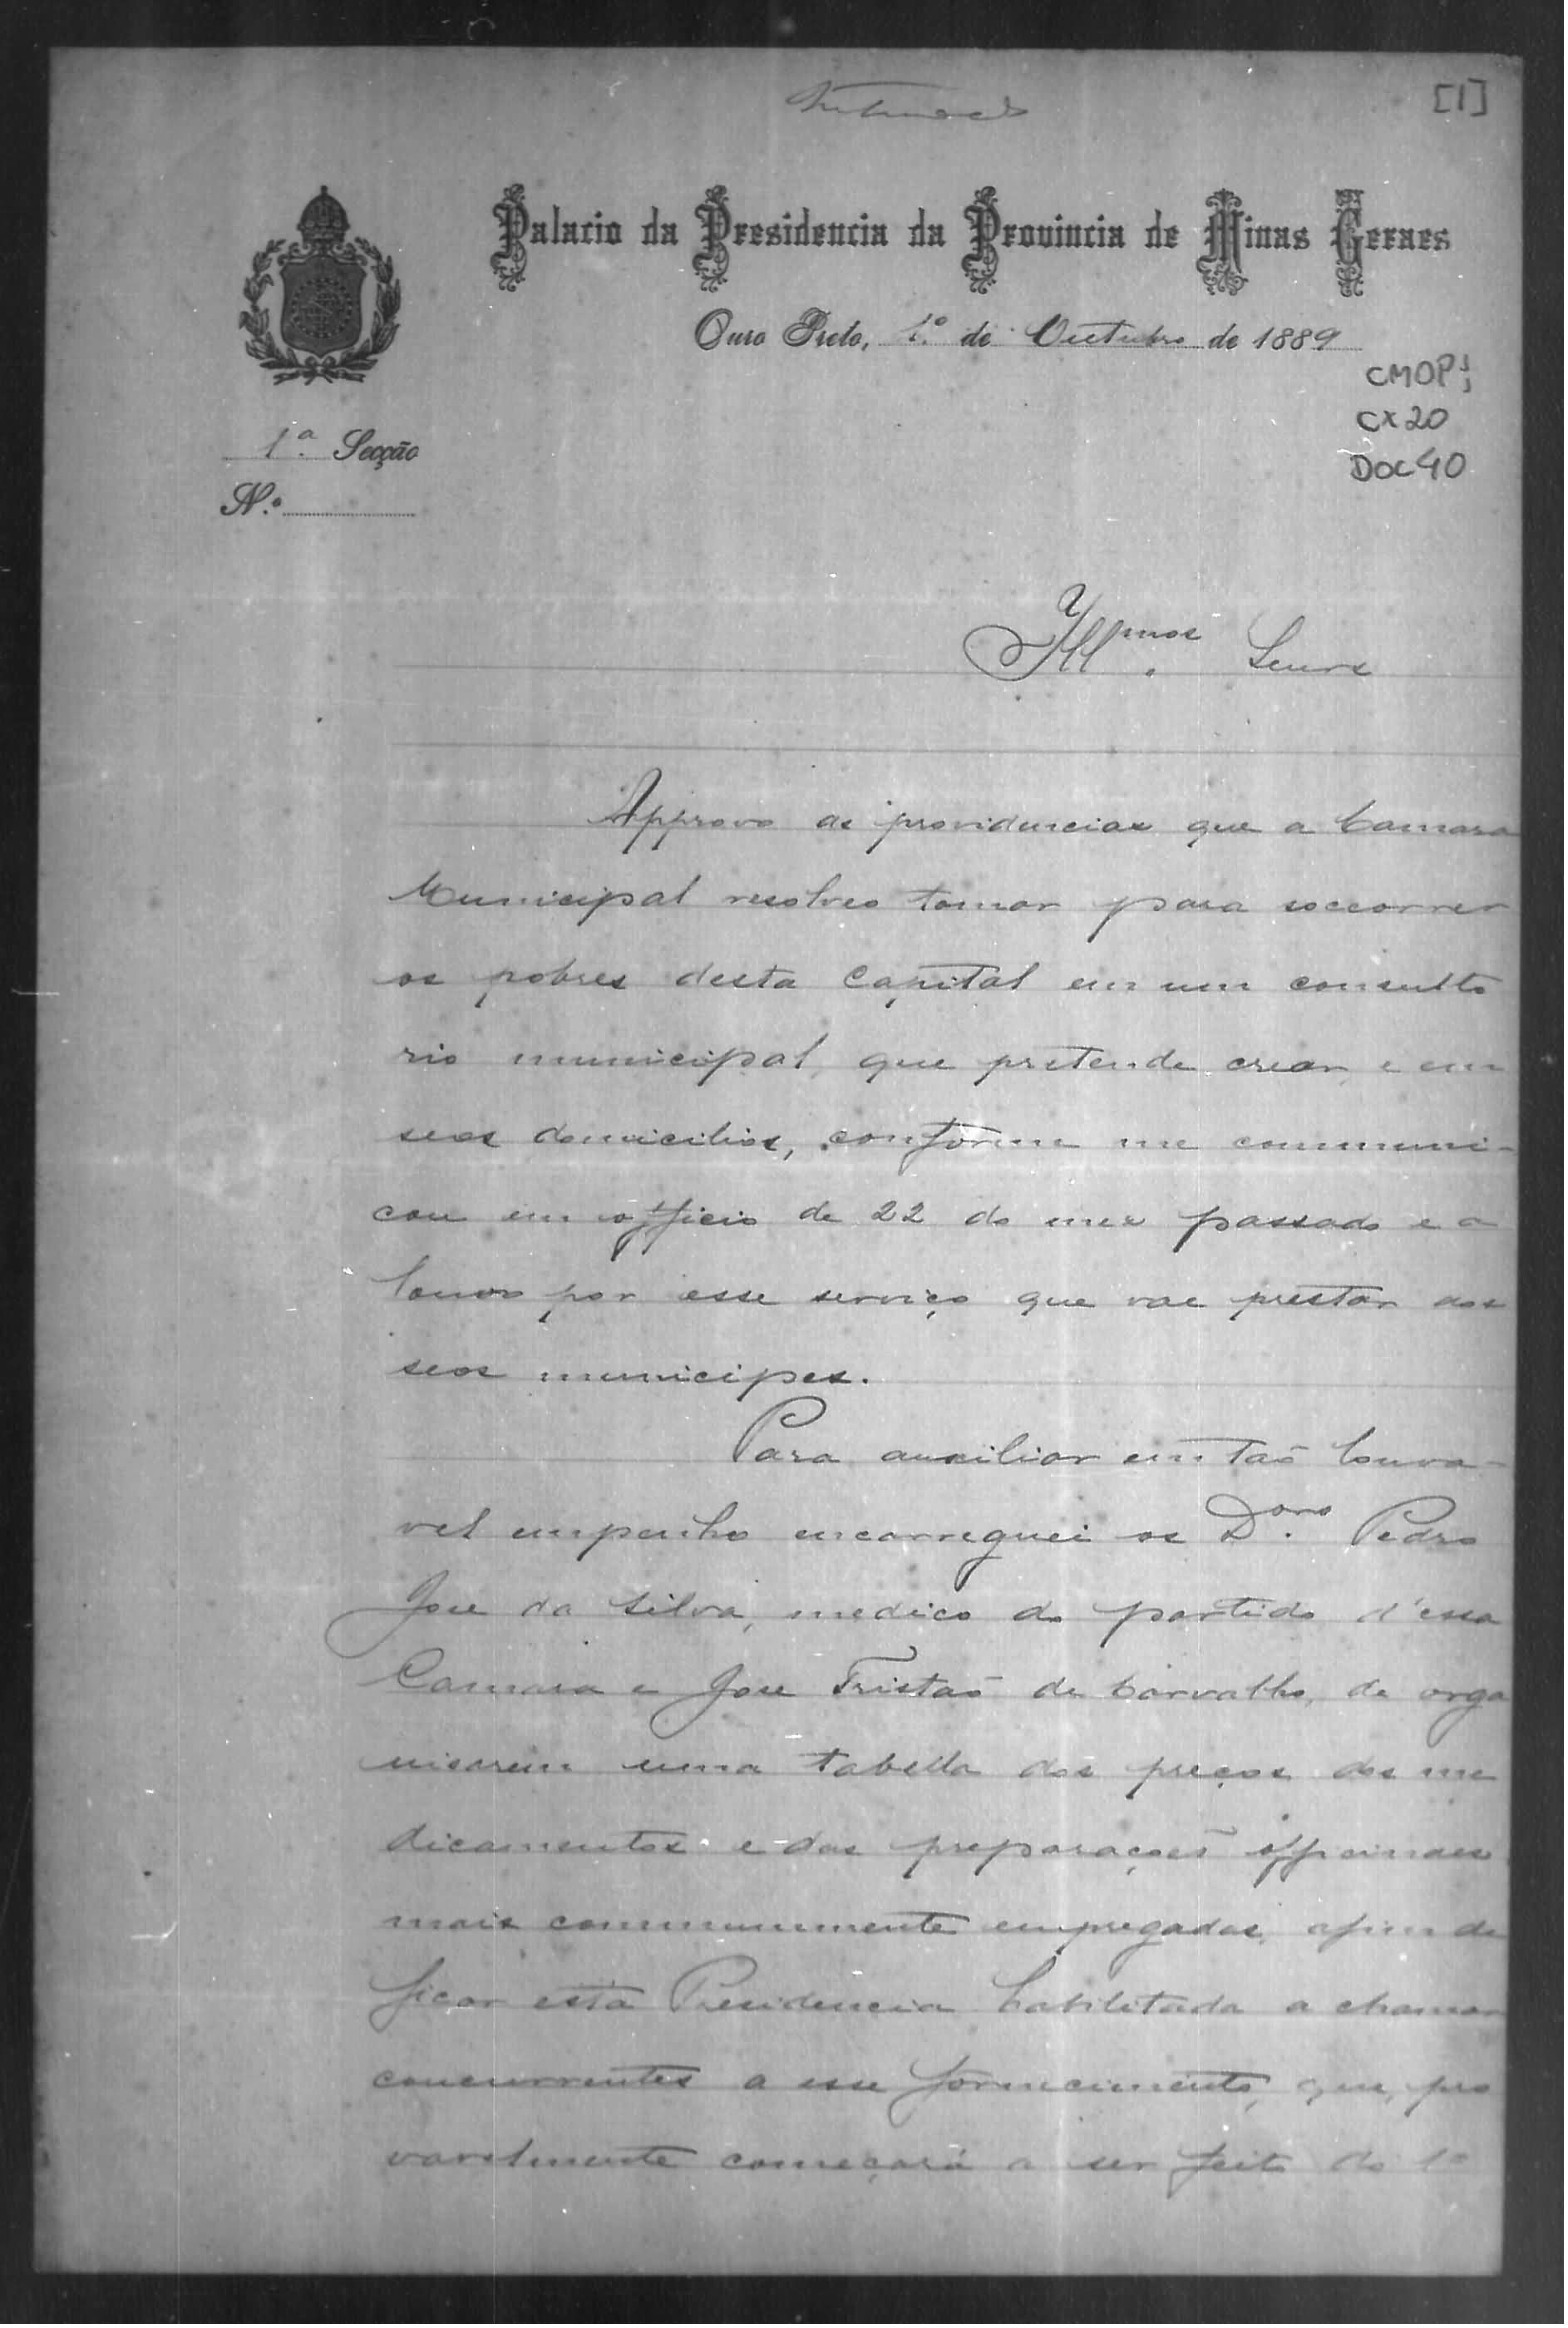 [1]
Palacio da Presidencia da Provincia de Minas Geraes
Ouro Preto, 1.º de Outubro de 1889
CMOP
CX20
DOC 40
1.ª Secção
N.º
Illmos. Senrs
Approvo as providencias que a Camara
Municipal resolveo tomar para soccorrer
os pobres desta Capital em um consulto
rio municipal, que pretende crear, e em
seos domicilios, conforme me communi-
cou em officio de 22 do mez passado e a
louvo por esse serviço que vae prestar aos
seos municipes.
Para auxiliar em taõ louva-
vel empenho encarreguei os Dores. Pedro
Jose da Silva, medico do partido d'essa
Camara e Jose Tristaõ de Carvalho, de orga
nisarem uma tabella dos preços dos me
dicamentos e das preparaçoẽs officinaes
mais communmente empregadas, afim de
ficar esta Presidencia habilitada a chamar
concurrentes a esse fornecimento, que, pro
vavelmente começará a ser feito do 1º